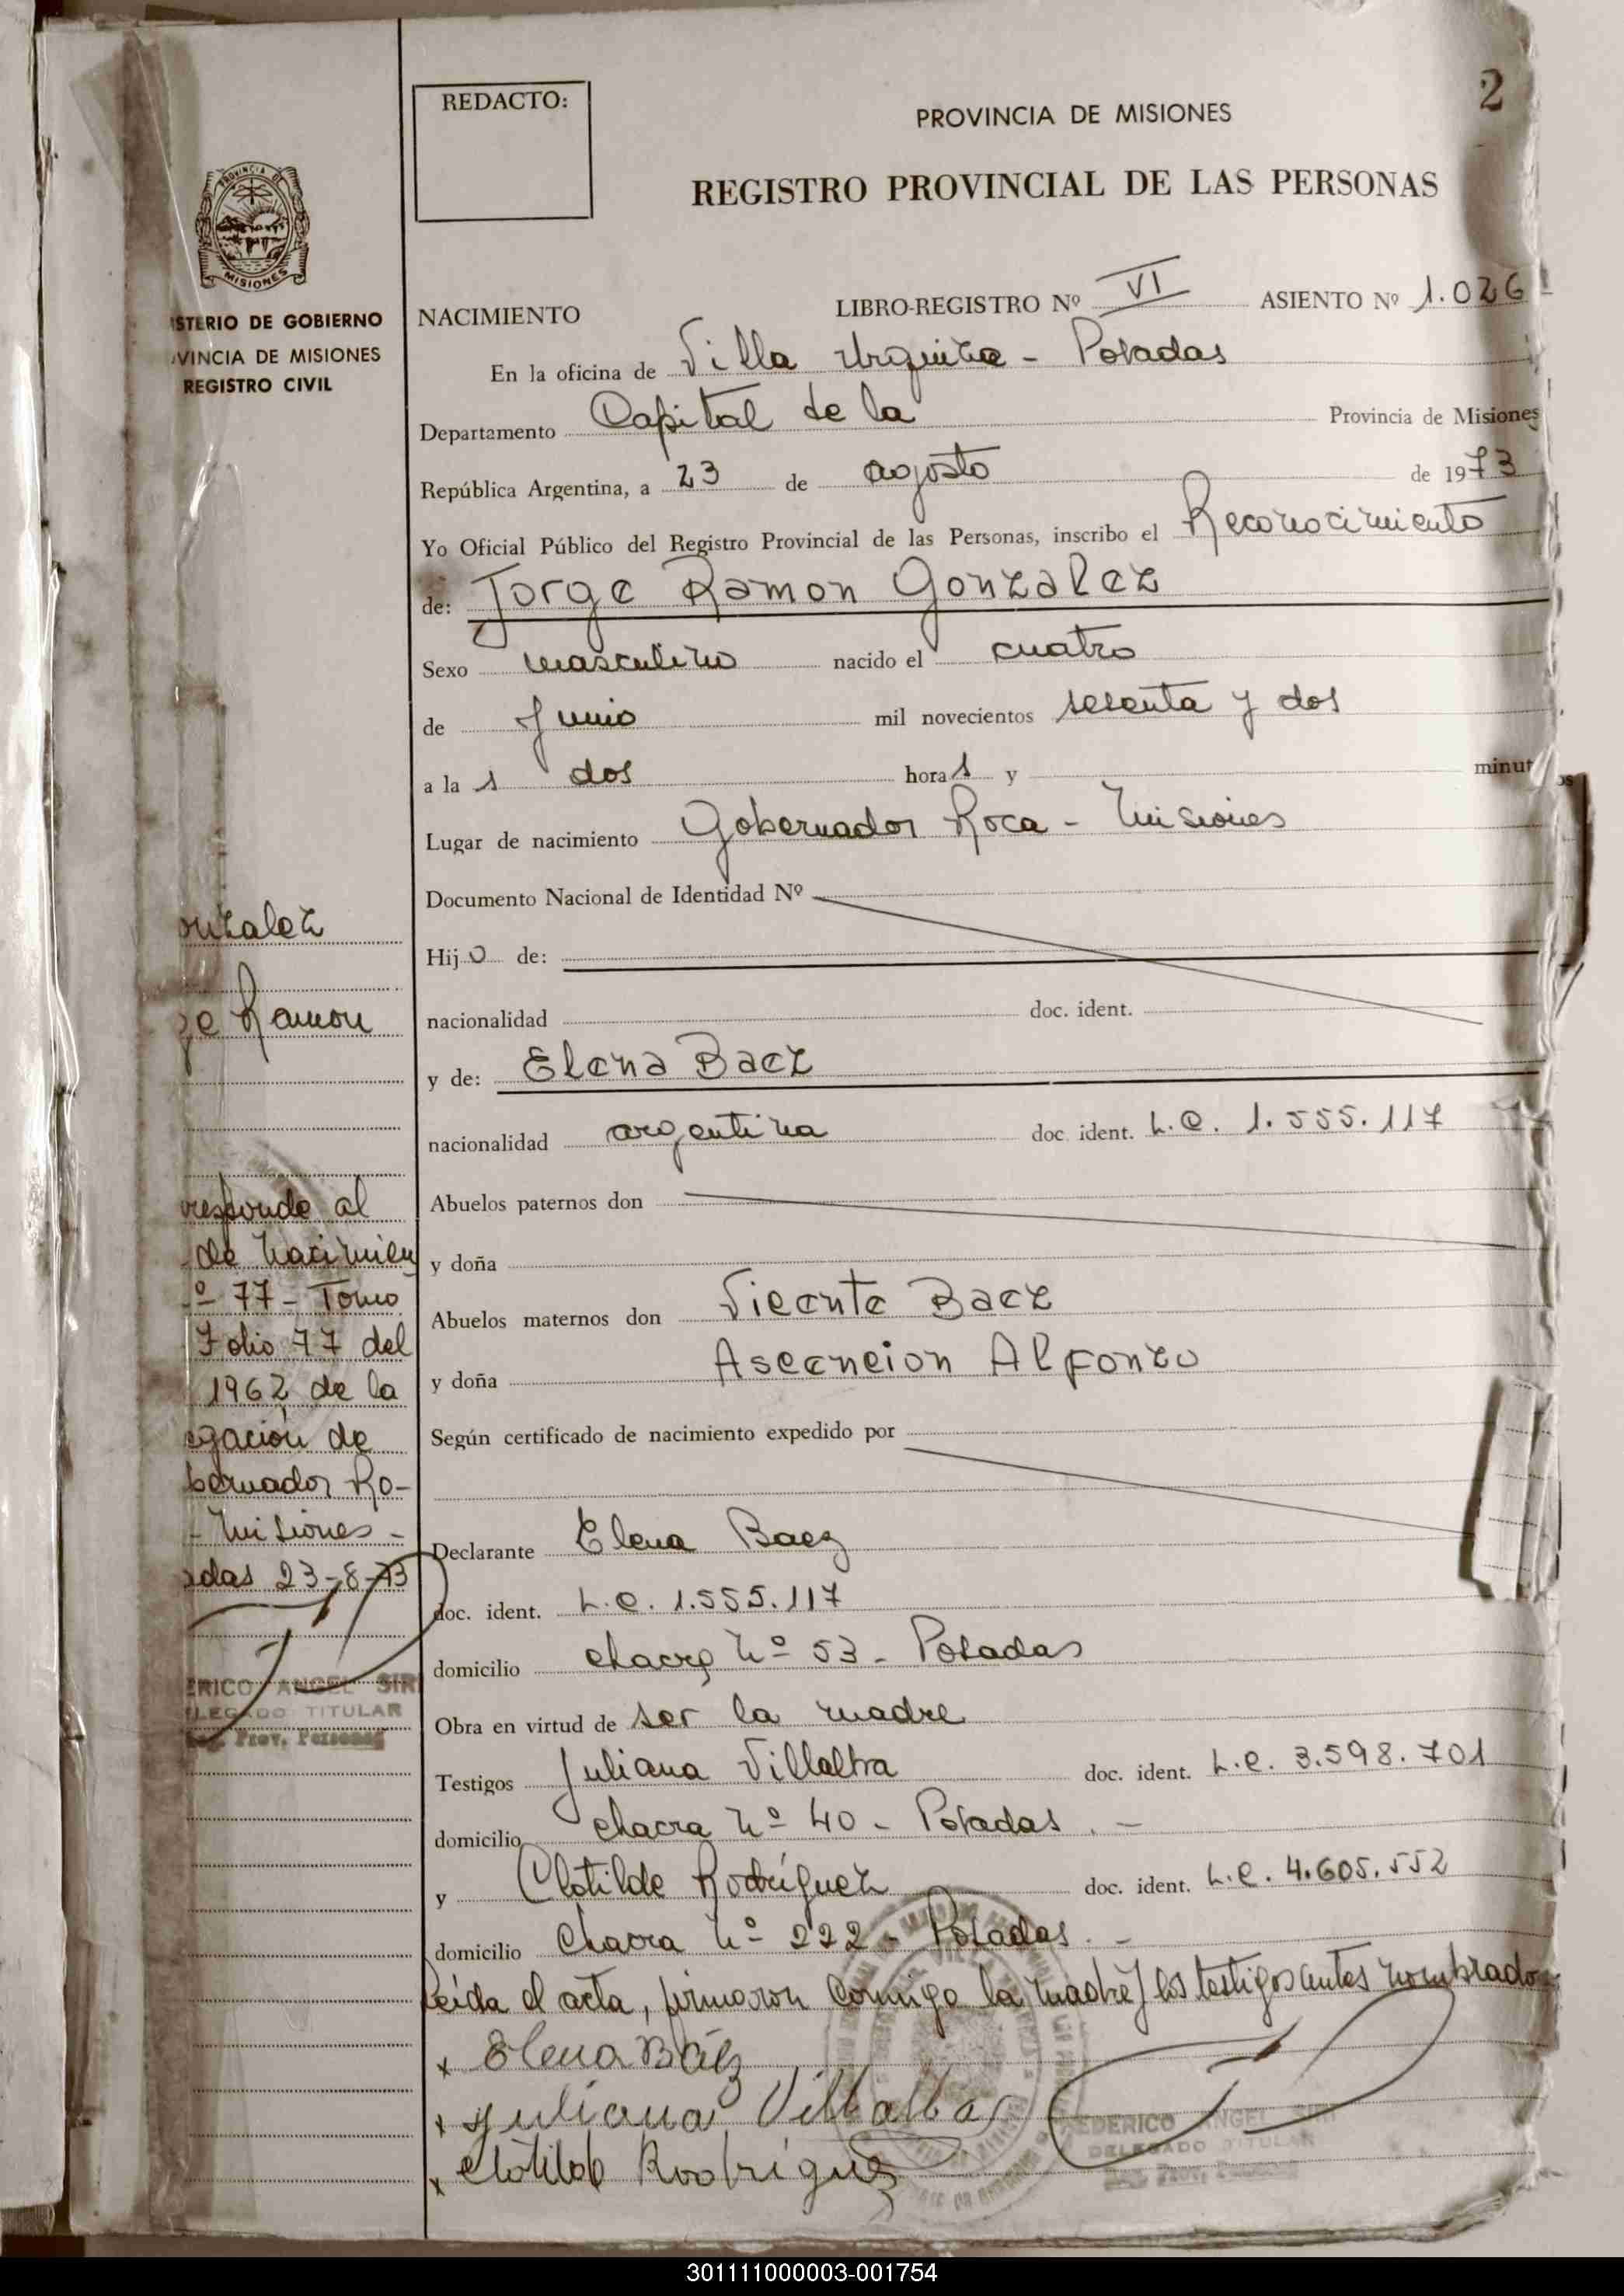 2
REDACTO:
PROVINCIA DE MISIONES
REGISTRO PROVINCIAL DE LAS PERSONAS
PROVINCIA DE
MISIONES
ISTERIO DE GOBIERNO
VINCIA DE MISIONES
REGISTRO CIVIL
NACIMIENTO LIBRO-REGISTRO Nº VI ASIENTO Nº 1.026
En la oficina de Villa Urquiza - Posadas
Departamento Capital de la Provincia de Misiones
República Argentina, a 23 de agosto de 1973
Yo Oficial Público del Registro Provincial de las Personas, inscribo el Reconocimiento
de: Jorge Ramon Gonzalez
Sexo masculino nacido el cuatro
de Junio mil novecientos sesenta y dos
a la s dos hora s y minut
Lugar de nacimiento Gobernador Roca - Misiones
Documento Nacional de Identidad Nº
Hij o de:
nacionalidad doc. ident.
y de: Elena Baez
nacionalidad argentina doc. ident. L.C. 1.555.117
Abuelos paternos don
y doña
Abuelos maternos don Vicente Baez
y doña Ascencion Alfonzo
Según certificado de nacimiento expedido por
Declarante Elena Baez
doc. ident. L.C. 1.555.117
domicilio chacra Nº 53 - Posadas
Obra en virtud de ser la madre
Testigos Juliana Villalba doc. ident. L.C. 3.598.701
domicilio chacra Nº 40 - Posadas. -
y Clotilde Rodríguez doc. ident. L.C. 4.605.552
domicilio Chacra Nº 222 - Posadas. -
Leída el acta, firmaron conmigo la madre y los testigos antes nombrados
x Elena Báez
x Juliana Villalba
x Clotilde Rodriguez
EDERICO ANGEL SIRI
DELEGADO TITULAR
onzalez
ge Ramon
responde al
de Nacimien
º 77 - Tomo
Folio 77 del
1962 de la
egación de
bernador Ro-
- Misiones -
adas 23-8-73
ERICO ANGEL SIRI
LEGADO TITULAR
Prov. Personas
301111000003-001754